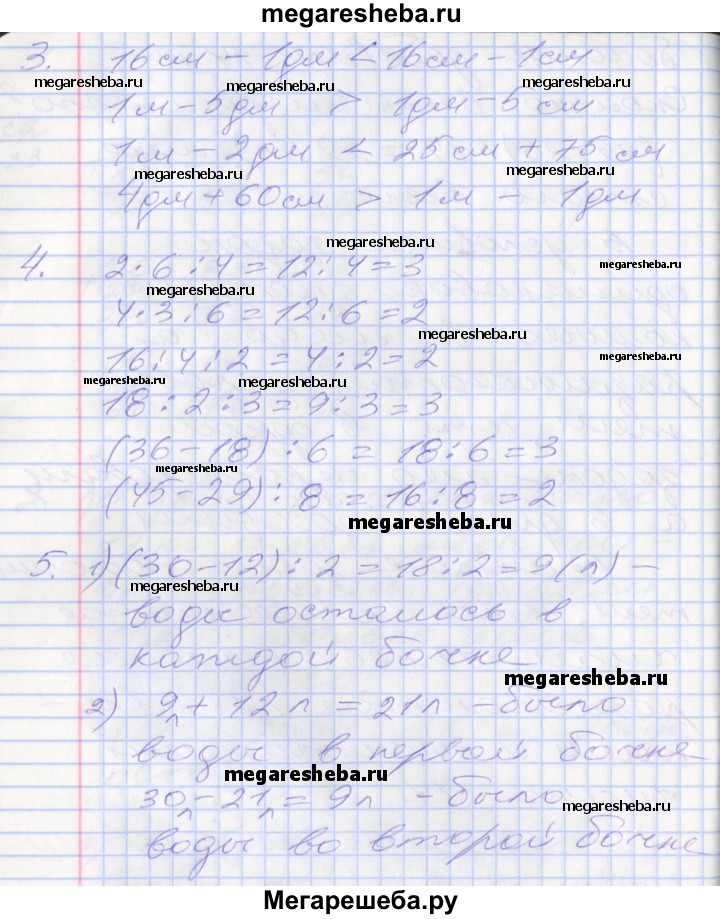 megaresheba.ru
3. 16см - 1дм < 16см - 1см
megaresheba.ru megaresheba.ru megaresheba.ru
1м - 5дм > 1дм - 5см
1м - 2дм < 25см + 75см
megaresheba.ru megaresheba.ru
4дм + 60см > 1м - 1дм
megaresheba.ru
4. 2·6:4=12:4=3
megaresheba.ru megaresheba.ru
4·3:6=12:6=2
megaresheba.ru
16:4:2=4:2=2
megaresheba.ru
megaresheba.ru megaresheba.ru
18:2:3=9:3=3
(36-18):6=18:6=3
megaresheba.ru
(45-29):8=16:8=2
megaresheba.ru
5. 1)(30-12):2=18:2=9(л) -
megaresheba.ru
воды осталось в
каждой бочке
megaresheba.ru
2) 9л + 12л = 21л - было
воды в первой бочке
megaresheba.ru
30л - 21л = 9л - было
megaresheba.ru
воды во второй бочке
Мегарешеба.ру